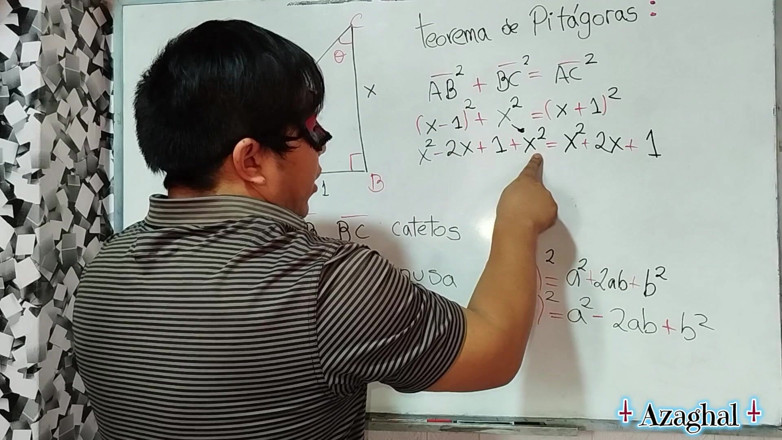 teorema de Pitágoras:
C
θ
x
B
1
AB² + BC² = AC²
(x-1)² + x² = (x+1)²
x² - 2x + 1 + x² = x² + 2x + 1
BC catetos
)² = a² + 2ab + b²
)² = a² - 2ab + b²
Azaghal